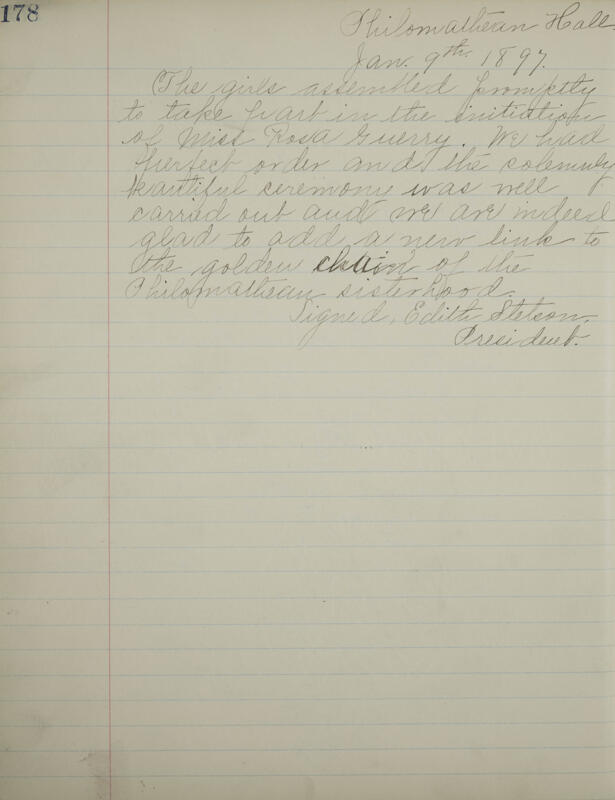 178
Philomathean Hall.
Jan. 9th. 1897.
The girls assembled promptly
to take part in the initiation
of Miss Rosa Guerry. We had
perfect order and the solemnly
beautiful ceremony was well
carried out and we are indeed
glad to add a new link to
the golden chain of the
Philomathean sisterhood.
Signed, Edith Stetson.
President.